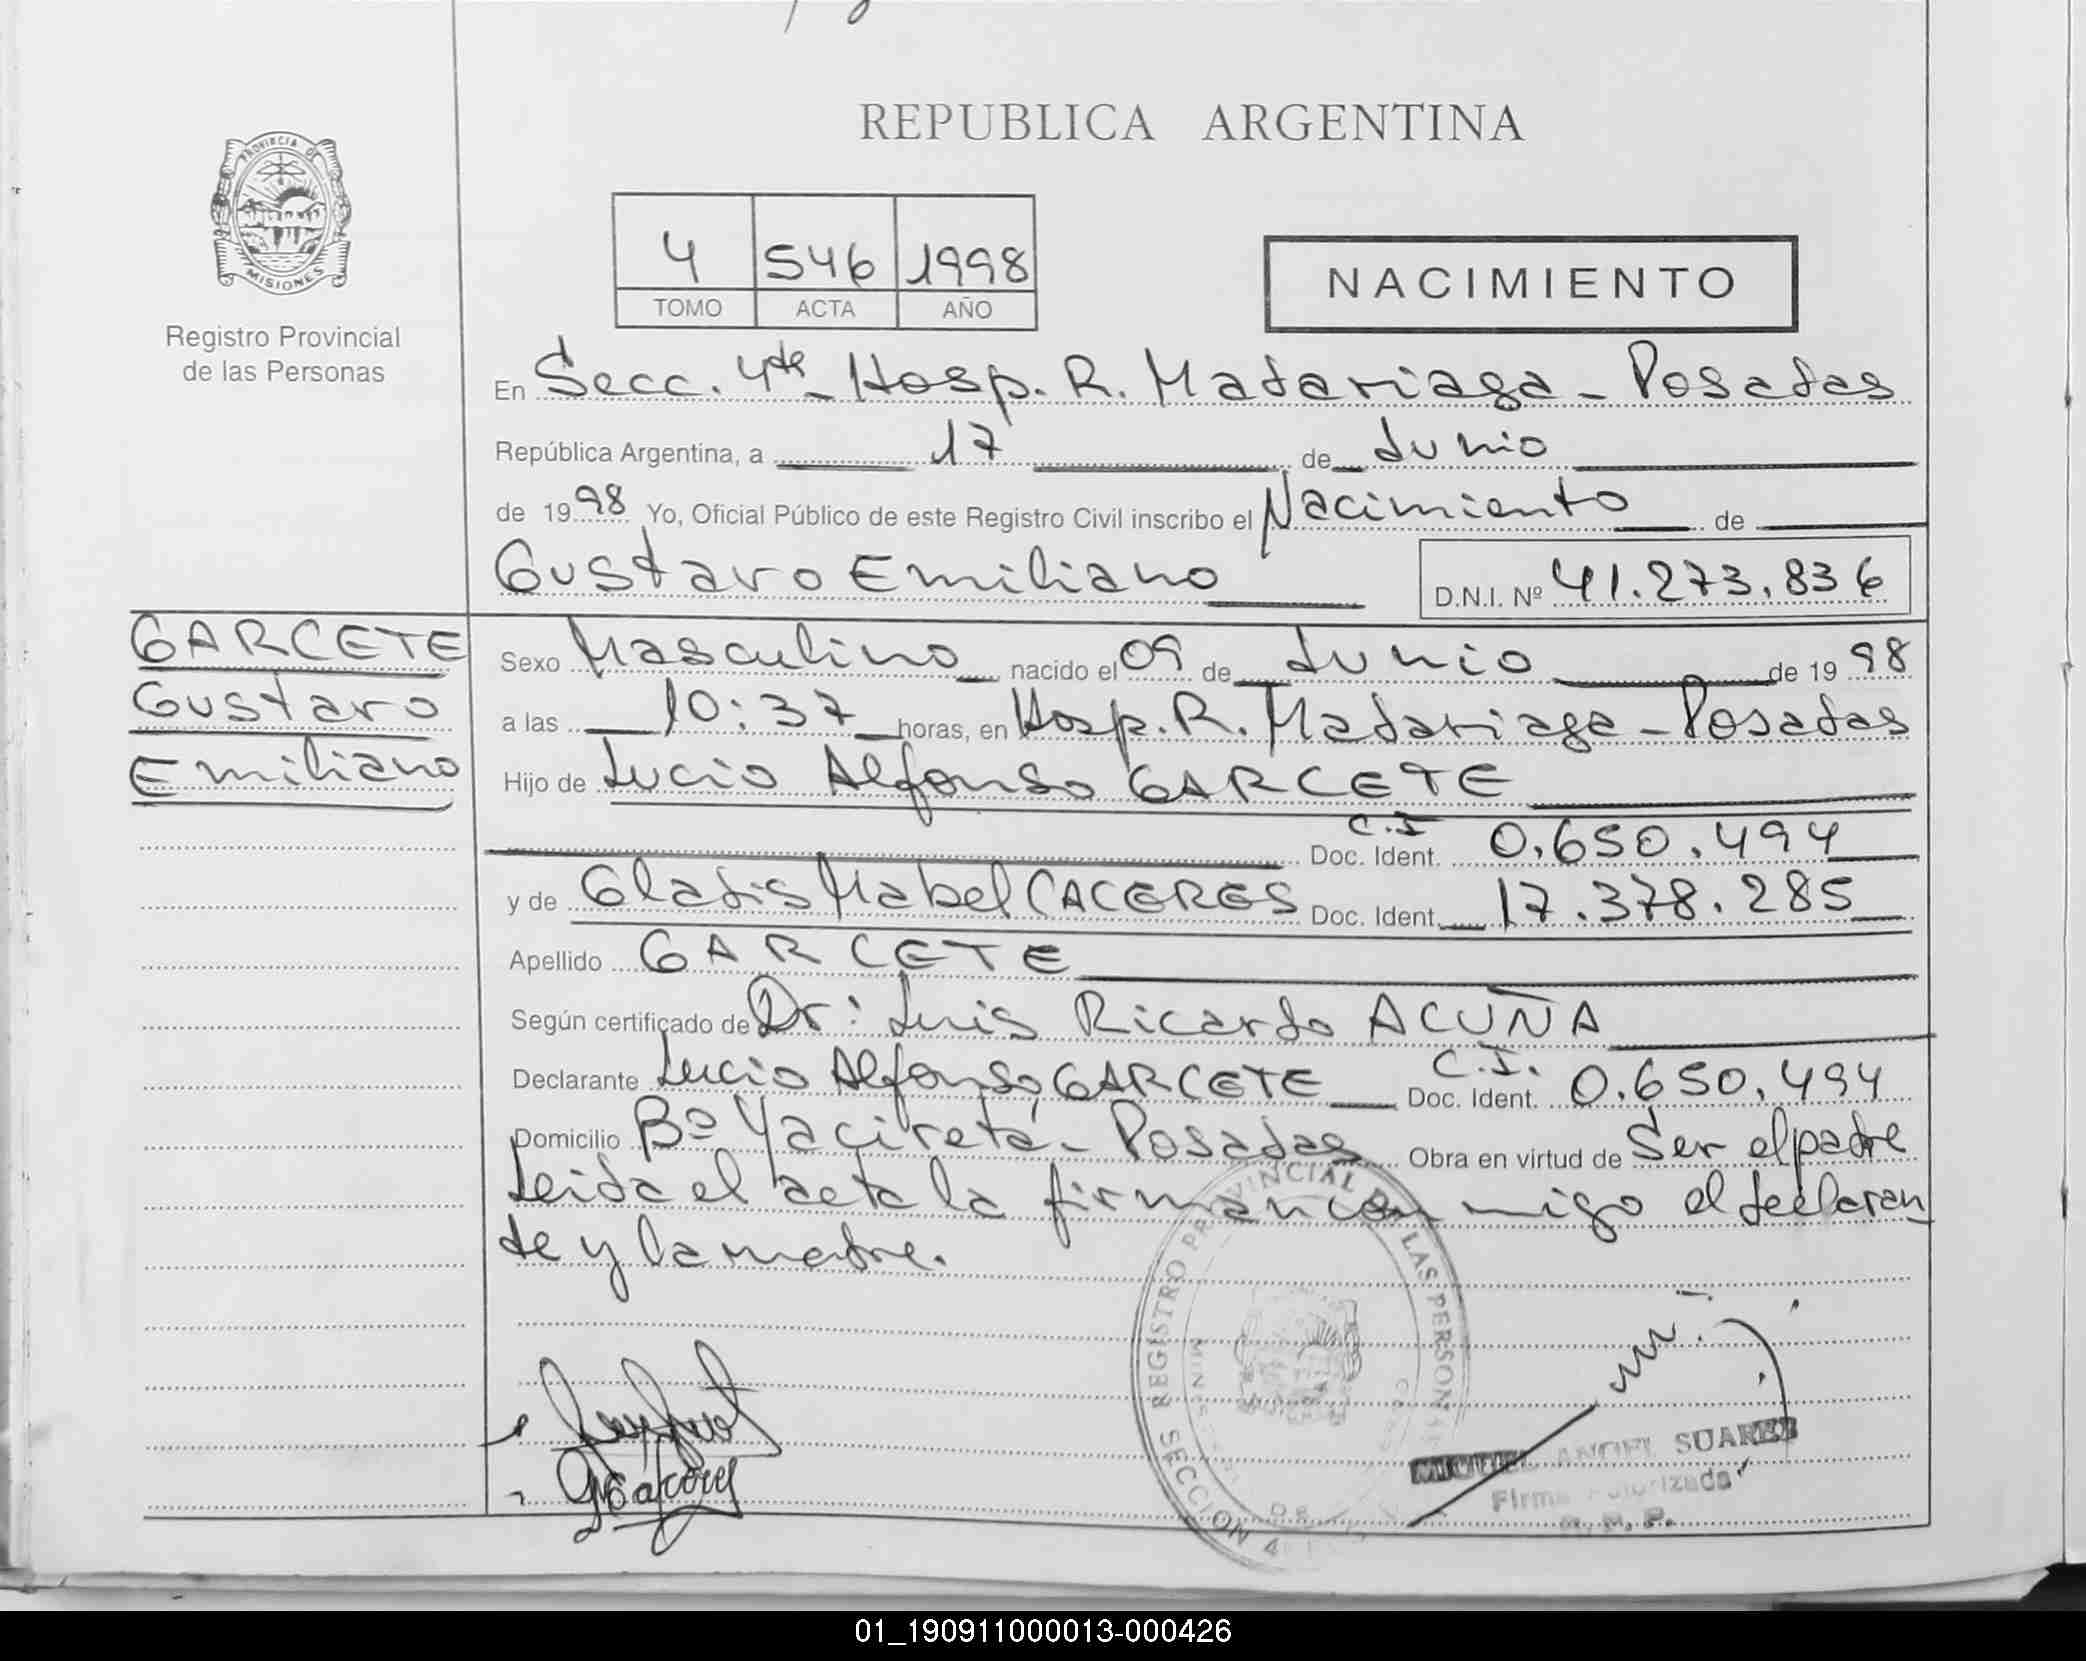 REPUBLICA ARGENTINA
PROVINCIA DE
MISIONES
Registro Provincial
de las Personas
4 546 1998
TOMO ACTA AÑO
NACIMIENTO
En Secc. 4ta - Hosp. R. Madariaga - Posadas
República Argentina, a 17 de Junio
de 1998 Yo, Oficial Público de este Registro Civil inscribo el Nacimiento de
Gustavo Emiliano D.N.I. Nº 41.273.836
GARCETE
Gustavo
Emiliano
Sexo Masculino nacido el 09 de Junio de 1998
a las 10:37 horas, en Hosp. R. Madariaga - Posadas
Hijo de Lucio Alfonso GARCETE
C.I
Doc. Ident. 0.650.494
y de Gladis Mabel CACERES Doc. Ident. 17.378.285
Apellido GARCETE
Según certificado de Dr: Luis Ricardo ACUÑA
Declarante Lucio Alfonso GARCETE C.I. Doc. Ident. 0.650.494
Domicilio Bº Yacireta - Posadas Obra en virtud de Ser el padre
Leida el acta la firman conmigo el declaran
te y la madre.
REGISTRO PROVINCIAL DE LAS PERSONAS
SECCION 4
MIGUEL ANGEL SUAREZ
Firma Autorizada
R. P. P.
01_190911000013-000426